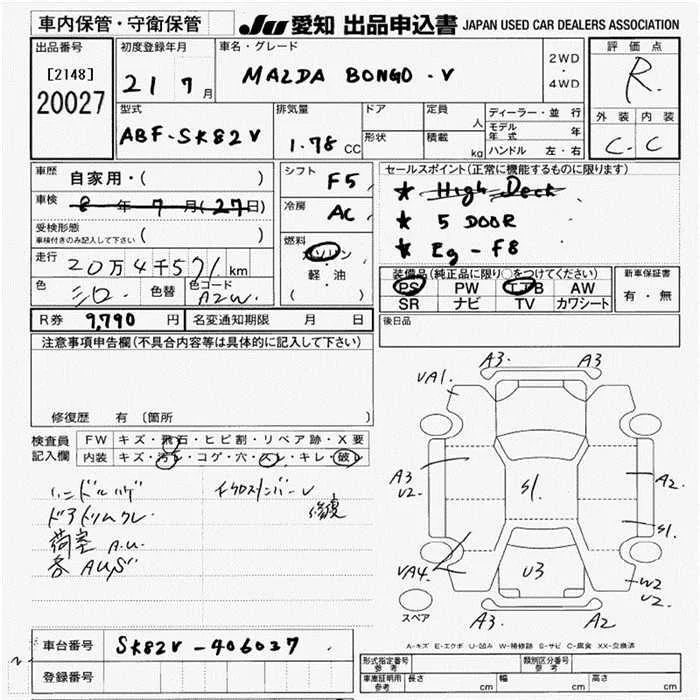 車内保管・守衛保管 JU 愛知 出品申込書 JAPAN USED CAR DEALERS ASSOCIATION
出品番号 [2148] 20027
初度登録年月 21 7月
車名・グレード MAZDA BONGO・V
2WD・4WD
評価点 R
外装 内装
C C
型式 ABF-SK82V
排気量 1.78 CC
ドア
形状
定員 人
積載 kg
ディーラー・並行
モデル年式 年
ハンドル 左・右
車歴 自家用・( )
車検 8年7月(27日)
受検形態 車検付きのみ記入して下さい ( )
走行 20万4千571km
色 シロ 色替 色コード A2W
シフト F5
冷房 AC
燃料 ガソリン・軽油 ( )
セールスポイント(正常に機能するものに限ります)
★ High Deck
★ 5 DOOR
★ Eg-F8
装備品(純正品に限り○をつけてください)
PS PW エアB AW
SR ナビ TV カワシート
新車保証書 有・無
R券 9,790円 名変通知期限 月 日
後日品
注意事項申告欄(不具合内容等は具体的に記入して下さい)
修復歴 有 〔箇所
検査員記入欄
FW キズ・飛石・ヒビ割・リペア跡・X要
内装 キズ・汚レ・コゲ・穴・スレ・キレ・破レ
荷室 A.U.
各 AUS
A3 A3
VA1
A3 U2
S1
A2
S1
VA4
U3
W2 U2
A3 A2
スペア
A-キズ E-エクボ U-凹み W-補修跡 S-サビ C-腐食 XX-交換済
車台番号 SK82V-406037
登録番号
形式指定番号 参考 類別区分番号 参考
車庫証明用 参考 長さ cm 幅 cm 高さ cm